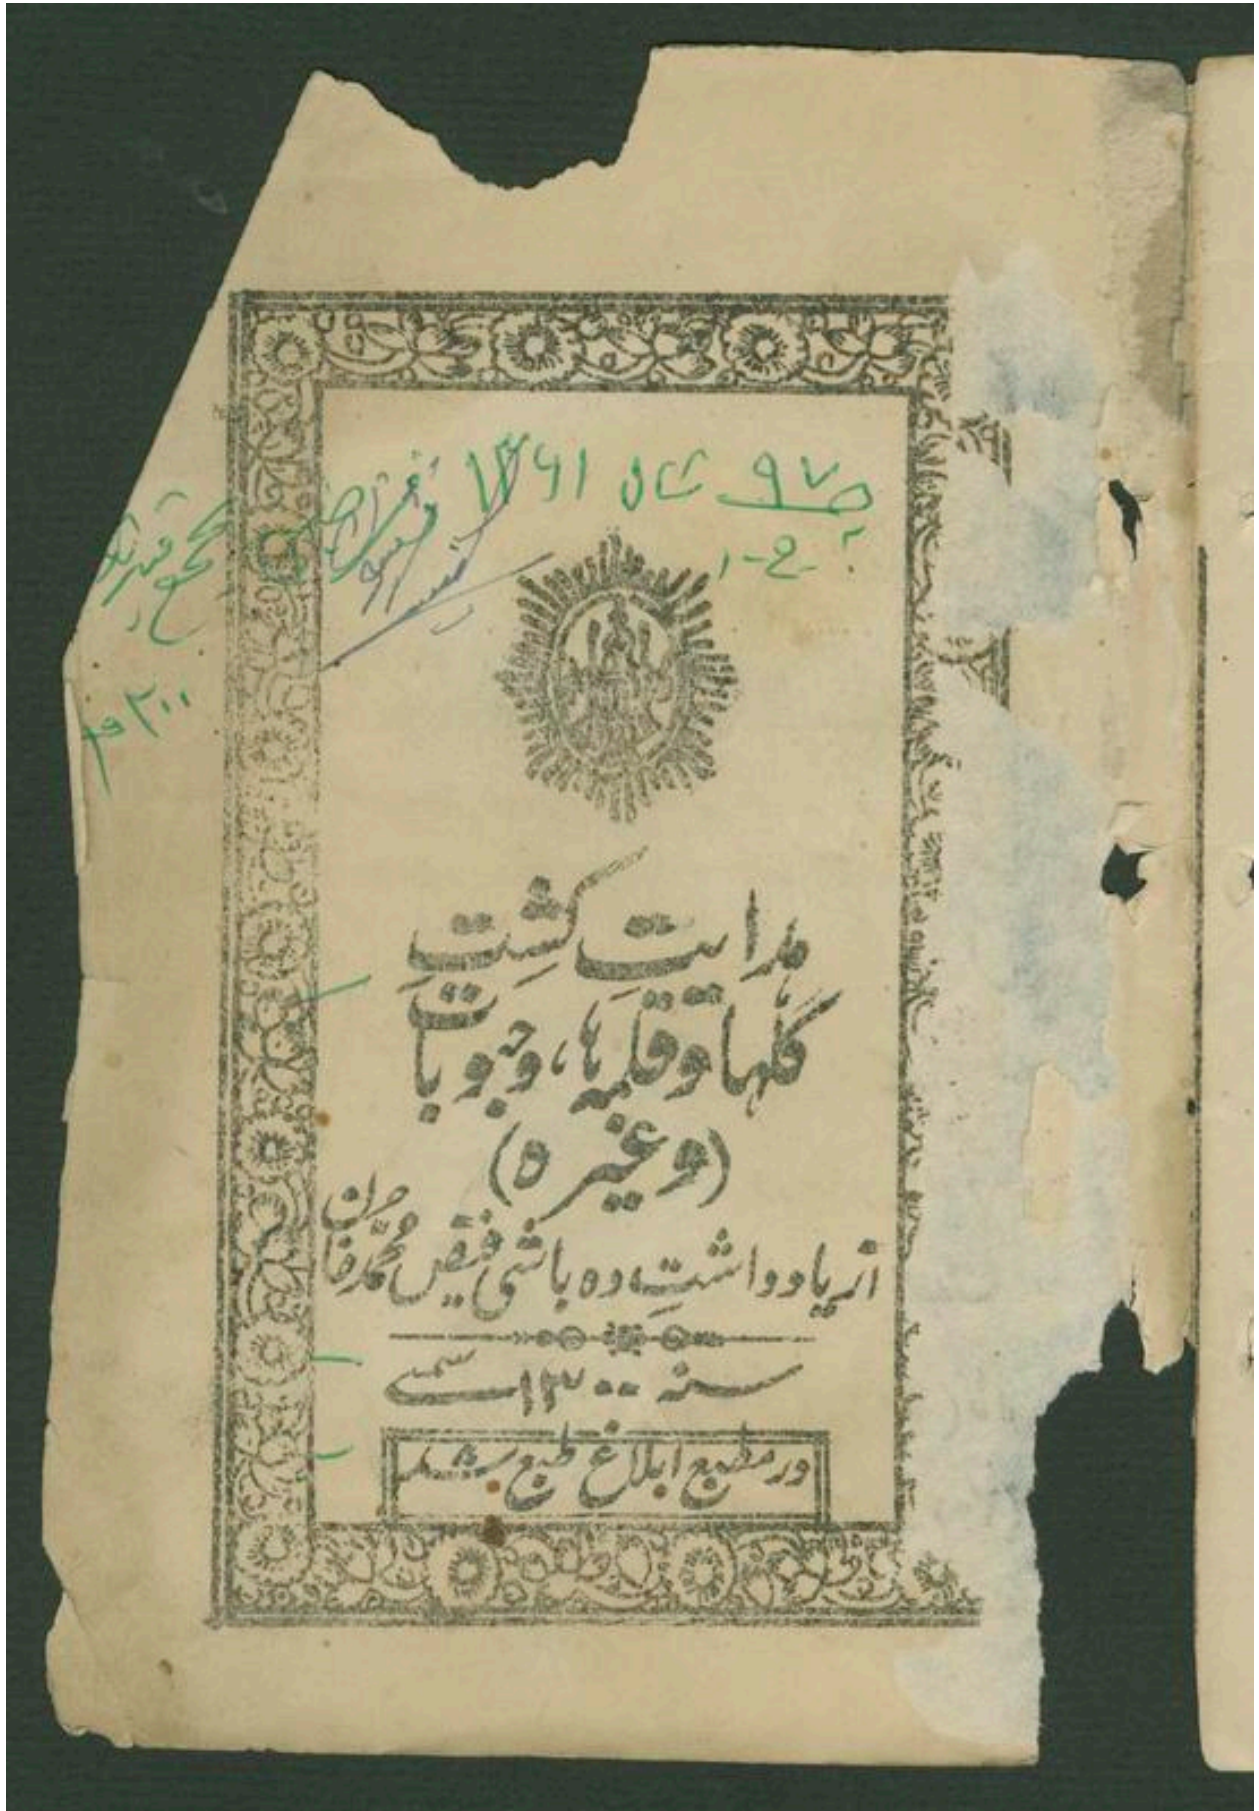 ۹۷ ۱۳۶۱
هدایتِ کشتِ
گلها و قلمه ها، و حبوبات
(وغیره)
از یادداشتِ ده باشی فیض محمد خان
سنه ۱۳۰۰ شمسی
در مطبع ابلاغ طبع شد